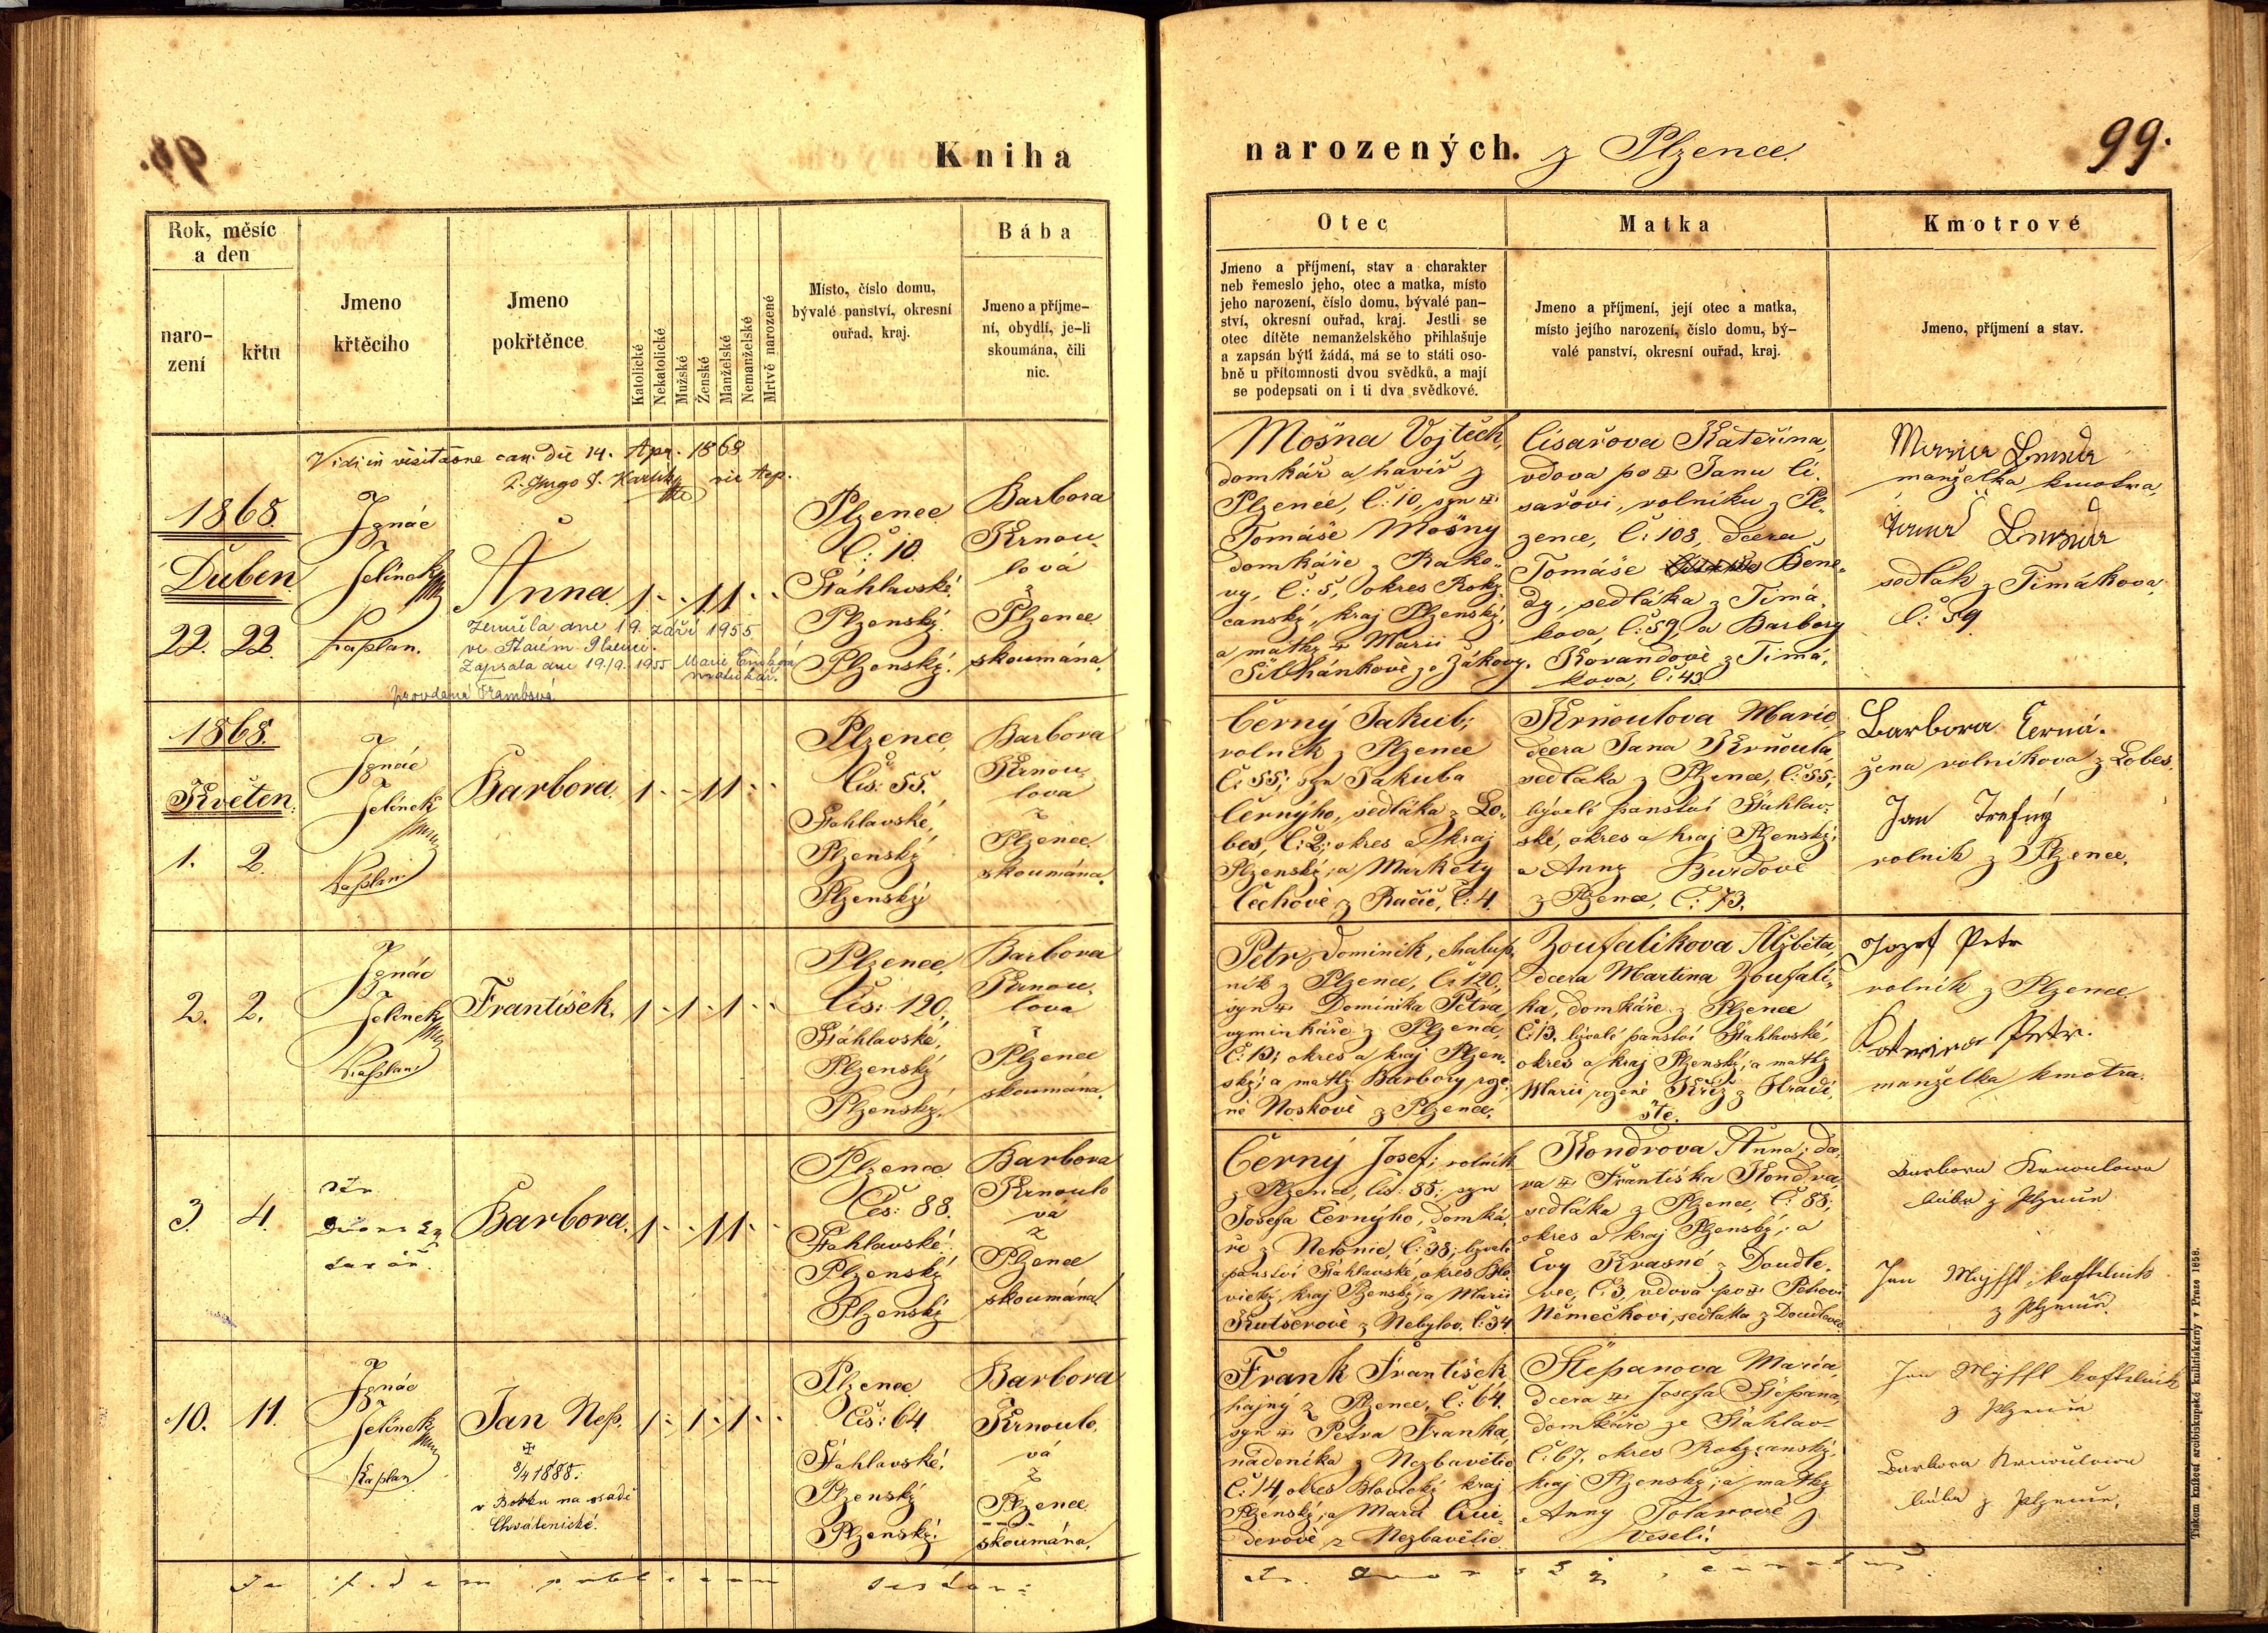 Kniha
narozených. z Plzence.
99.
Rok, měsíc
a den
naro-
zení
křtu
Jmeno
křtěcího
Jmeno
pokřtěnce
Katolické
Nekatolické
Mužské
Ženské
Manželské
Nemanželské
Mrtvě narozené
Místo, číslo domu,
bývalé panství, okresní
ouřad, kraj.
Bába
Jmeno a příjme-
ní, obydlí, je-li
skoumána, čili
nic.
Otec
Jmeno a příjmení, stav a charakter
neb řemeslo jeho, otec a matka, místo
jeho narození, číslo domu, bývalé pan-
ství, okresní ouřad, kraj. Jestli se
otec dítěte nemanželského přihlašuje
a zapsán býti žádá, má se to státi oso-
bně u přítomnosti dvou svědků, a mají
se podepsati on i ti dva svědkové.
Matka
Jmeno a příjmení, její otec a matka,
místo jejího narození, číslo domu, bý-
valé panství, okresní ouřad, kraj.
Kmotrové
Jmeno, příjmení a stav.
Vidi in visitatione can. die 14. Apr. 1868
1868.
Duben
22. 22.
Ignác
Jelínek
Kaplan.
Anna.
1 . . 1 1 . .
Zemřela dne 19. září 1955
ve Starém Plzenci.
Zapsala dne 19./9. 1955 Marie
matrikář.
provdaná
Plzenec
Č: 10.
Šťáhlavské,
Plzenský
Plzenský.
Barbora
Krnou-
lová
z
Plzence
skoumána.
Mošna Vojtěch,
domkář a havíř z
Plzence, č: 10, syn
Tomáše Mošny
domkáře z Rako-
vy, č: 5, okres Roky-
canský, kraj Plzenský,
a matky Marii
ze Žákavy.
Císařova Kateřina,
vdova po Janu Cí-
sařovi, rolníku z Pl-
zence, č: 108, dcera
Tomáše Bene-
dy, sedláka z Timá-
kova, č: 59, a Barbory
Kovandově z Timá-
kova, č: 43.
manželka kmotra,
sedlák z Timákova,
č: 59
1868.
Květen.
1. 2.
Ignác
Jelínek
Kaplan.
Barbora.
1 . . 1 1 . .
Plzenec,
Čís: 55.
Šťahlavské,
Plzenský
Plzenský
Barbora
Krnou-
lova
z
Plzence
skoumána.
Černý Jakub,
rolník z Plzence
č: 55; syn Jakuba
Černýho, sedláka z Lo-
bes, č: 2; okres a kraj
Plzenský; a Markéty
Čechově z Račic, č: 4.
Krňoulova Marie,
dcera Jana Krňoula,
sedláka z Plzence, č: 55;
bývalé panství Šťahlav-
ské, okres a kraj Plzenský;
a Anny Burdově
z Plzence, č: 73.
Barbora Černá.
žena rolníkova z Lobes.
Jan Trefný
rolník z Plzence.
2. 2.
Ignác
Jelínek
Kaplan.
František.
1 . 1 . 1 . .
Plzenec,
Čís: 120.
Šťáhlavské,
Plzenský
Plzenský.
Barbora
Krnou-
lova
z
Plzence
skoumána.
Petr, Dominik, chalup-
ník z Plzence, č: 120,
syn Dominika Petra,
vyminkáře z Plzence,
č: 13; okres a kraj Plzen-
ský; a matky Barbory roze-
né Noskově z Plzence.
Zoufalikova Alžběta,
dcera Martina Zoufali-
ka, domkáře z Plzence
č: 13, bývalé panství Šťahlavské,
okres a kraj Plzenský, a matky
Marii rozené Kříž z Hradi-
ště.
Jozef Petr
rolník z Plzence.
Petr.
manželka kmotra.
3. 4.
Barbora.
1 . . 1 1 . .
Plzenec
Čís: 88.
Šťahlavské.
Plzenský
Plzenský
Barbora
Krnoulo
va
z
Plzence
skoumána!
Černý Josef; rolník
z Plzence, čís: 88; syn
Josefa Černýho, domká-
ře z Netonic, č: 38; bývalé
panství Šťahlavské, okres Blo-
vický, kraj Plzenský; a Marii
Kutšerově z Nebylov, č: 34.
Kondrova Anna; dce-
ra Františka Kondra,
sedláka z Plzence, č: 88;
okres a kraj Plzenský; a
Evy Krasné z Doudle-
vec, č: 3, vdova po Petrovi
Němečkovi, sedláka z Doudlevec.
Barbora Krnoulowa
bába z Plzence
Jan
z Plzence.
10. 11.
Ignác
Jelínek
Kaplan
Jan Nep.
1 . 1 . 1 . .
8/4 1888.
v Borku na osadě
Chválenické.
Plzenec
Čís: 64.
Šťahlavské.
Plzenský
Plzenský.
Barbora
Krnoulo,
vá
z
Plzence
skoumána,
Frank František
hajný z Plzence, č: 64.
syn Petra Franka,
nádeníka z Nezbavětic
č: 14 okres Blovický kraj
Plzenský; a Marii
z Nezbavětic.
Štěpanova Maria,
dcera Josefa Štěpana,
domkáře ze Šťáhlav
č: 67. okres Rokycanský
kraj Plzenský; a matky
Anny Tolarově z
Veselí.
Jan
z Plzence
Barbora Krnoulowa
bába z Plzence.
Tiskem knížecí arcibiskupské knihtiskárny v Praze 1858.